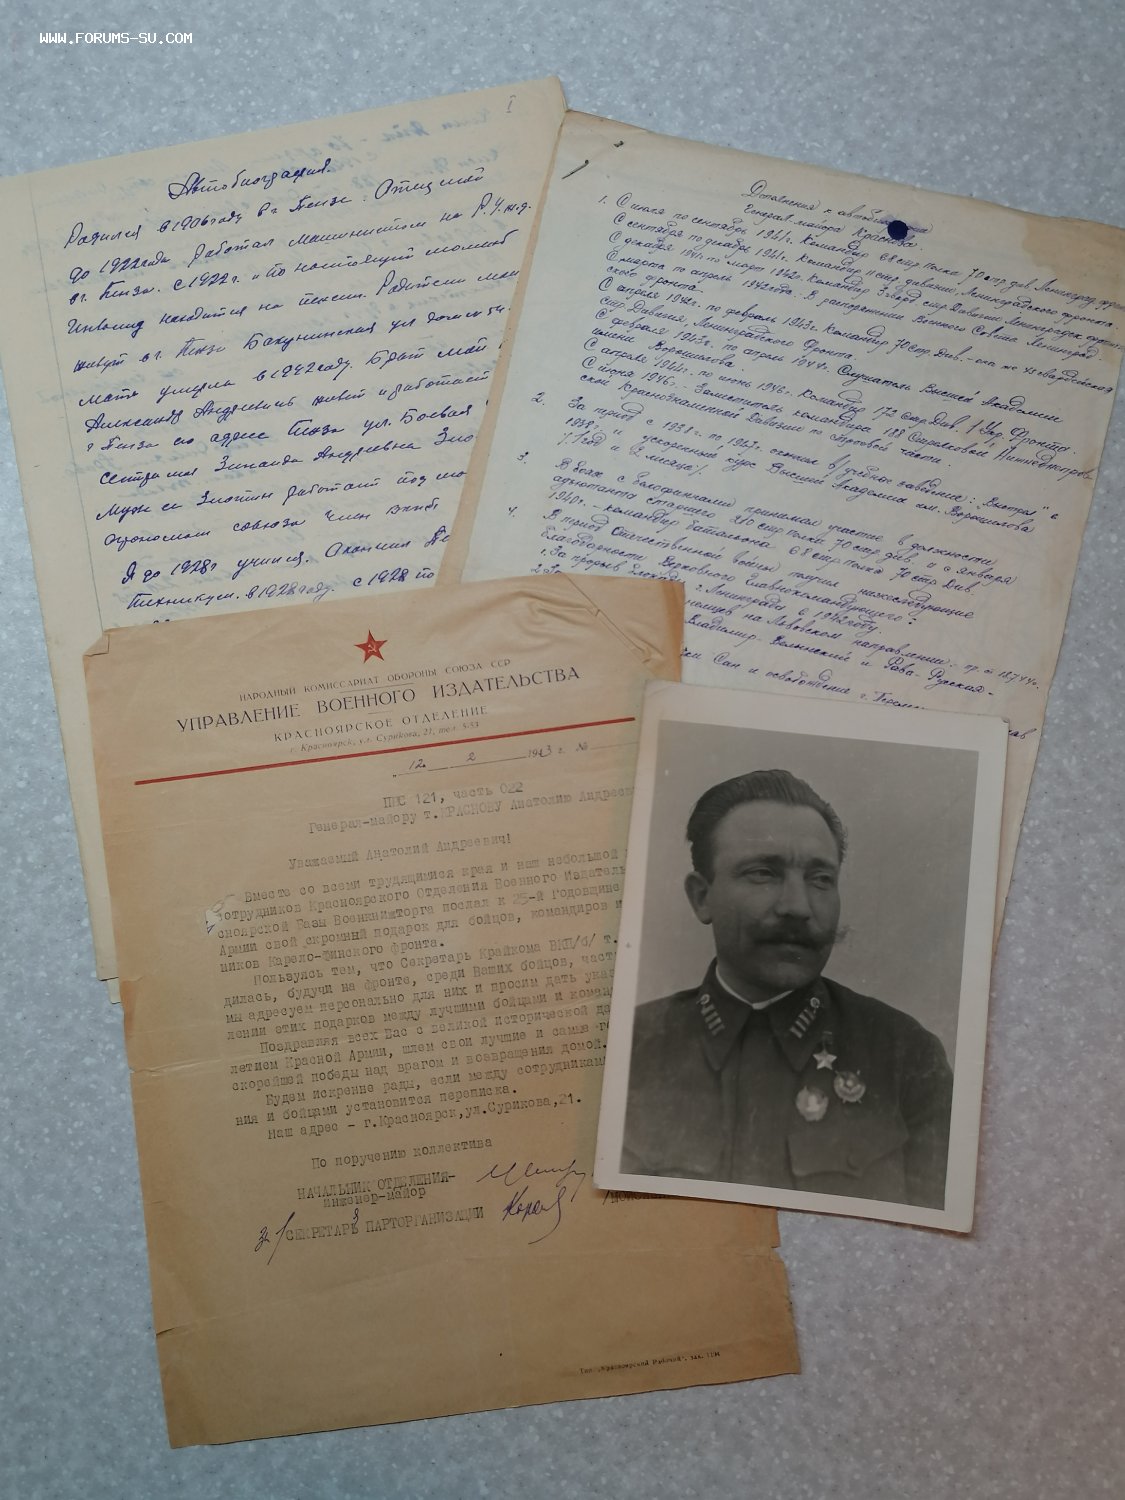 WWW.FORUMS-SU.COM
I
Автобиография.
Родился в 1906 году в г. Пензе. Отец мой
до 1922 года работал машинистом на Р.У.ж.д.
в г. Пенза. С 1922 г. и по настоящий момент
Инвалид находится на пенсии. Родители мои
живут в г. Пенза Бакунинская ул дом № 54.
мать умерла в 1942 году. Брат мой
Александр Андреевич живет и работает
г Пенза по адресу Пенза ул. Боевая
сестра моя Зинаида Андреевна
муж ее работает под
агрономом союза член вкпб
Я до 1928 г учился. Окончил
Техникум. в 1928 году. с 1928 по
2
Дополнения к автобиографии
Генерал-майора Краснова.
1. С июля по сентябрь 1941 г. Командир 68 стр полка 70 стр див. Ленинград. фронта
С сентября по декабрь 1941 г. Командир 11 стр дивизии Ленинградского фронта.
С декабря 1941 по март 1942 г. Командир 3 гвард стр Дивизии Ленинградск фронта
С марта по апрель 1942 года. В распоряжении Военного Совета Ленинград
ского фронта.
С апреля 1942 г. по февраль 1943 г. Командир 70 стр. Див. - она же 45 гвардейская
стр Дивизия, Ленинградского Фронта.
С февраля 1943 г. по апрель 1944 г. Слушатель Высшей Академии
имени Ворошилова.
С апреля 1944 г. по июнь 1946 г. Командир 172 стр Див. / 1 Укр. Фронта.
С июня 1946 г. - Заместитель командира 188 Стрелковой Нижнеднепров
ской Краснознаменной Дивизии по строевой части.
2. За период с 1938 г. по 1947 г. окончил в учебное заведение: „Выстрел" в
1938 г. и ускоренный курс Высшей Академии им. Ворошилова
/1 год и 2 месяца/.
3. В боях с белофиннами принимал участие в должности
адъютанта старшего 210 стр полка 70 стр див. и с января
1940 г. - командир батальона 68 стр полка 70 стр Див.
4. В период Отечественной войны получил нижеследующие
благодарности Верховного Главнокомандующего:
1. За прорыв блокады г. Ленинграда в 1942 году.
2. За
немцев на Львовском направлении - пр. от 18.7.44 г.
Владимир-Волынский и Рава-Русская -
Сан и освобождение г.
НАРОДНЫЙ КОМИССАРИАТ ОБОРОНЫ СОЮЗА ССР
УПРАВЛЕНИЕ ВОЕННОГО ИЗДАТЕЛЬСТВА
КРАСНОЯРСКОЕ ОТДЕЛЕНИЕ
г. Красноярск, ул. Сурикова, 21, тел. 5-53
„ 12 2 1943 г. №
ППС 121, часть 022
Генерал-майору т. КРАСНОВУ Анатолию Андрееви
Уважаемый Анатолий Андреевич!
Вместе со всеми трудящимися края и наш небольшой
сотрудников Красноярского Отделения Военного Издатель
сноярской Базы Военкнижторга послал к 25-й Годовщине
Армии свой скромный подарок для бойцов, командиров и
ников Карело-Финского фронта.
Пользуясь тем, что Секретарь Крайкома ВКП/б/ т.
дилась, будучи на фронте, среди Ваших бойцов, част
мы адресуем персонально для них и просим дать указ
лении этих подарков между лучшими бойцами и коман
Поздравляя всех Вас с великой исторической да
летием Красной Армии, шлем свои лучшие и самые го
скорейшей победы над врагом и возвращения домой.
Будем искренне рады, если между сотрудниками
ния и бойцами установится переписка.
Наш адрес - г.Красноярск,ул.Сурикова,21.
По поручению коллектива
НАЧАЛЬНИК ОТДЕЛЕНИЯ-
инженер-майор
СЕКРЕТАРЬ ПАРТОРГАНИЗАЦИИ
Тип. „Красноярский Рабочий", зак.